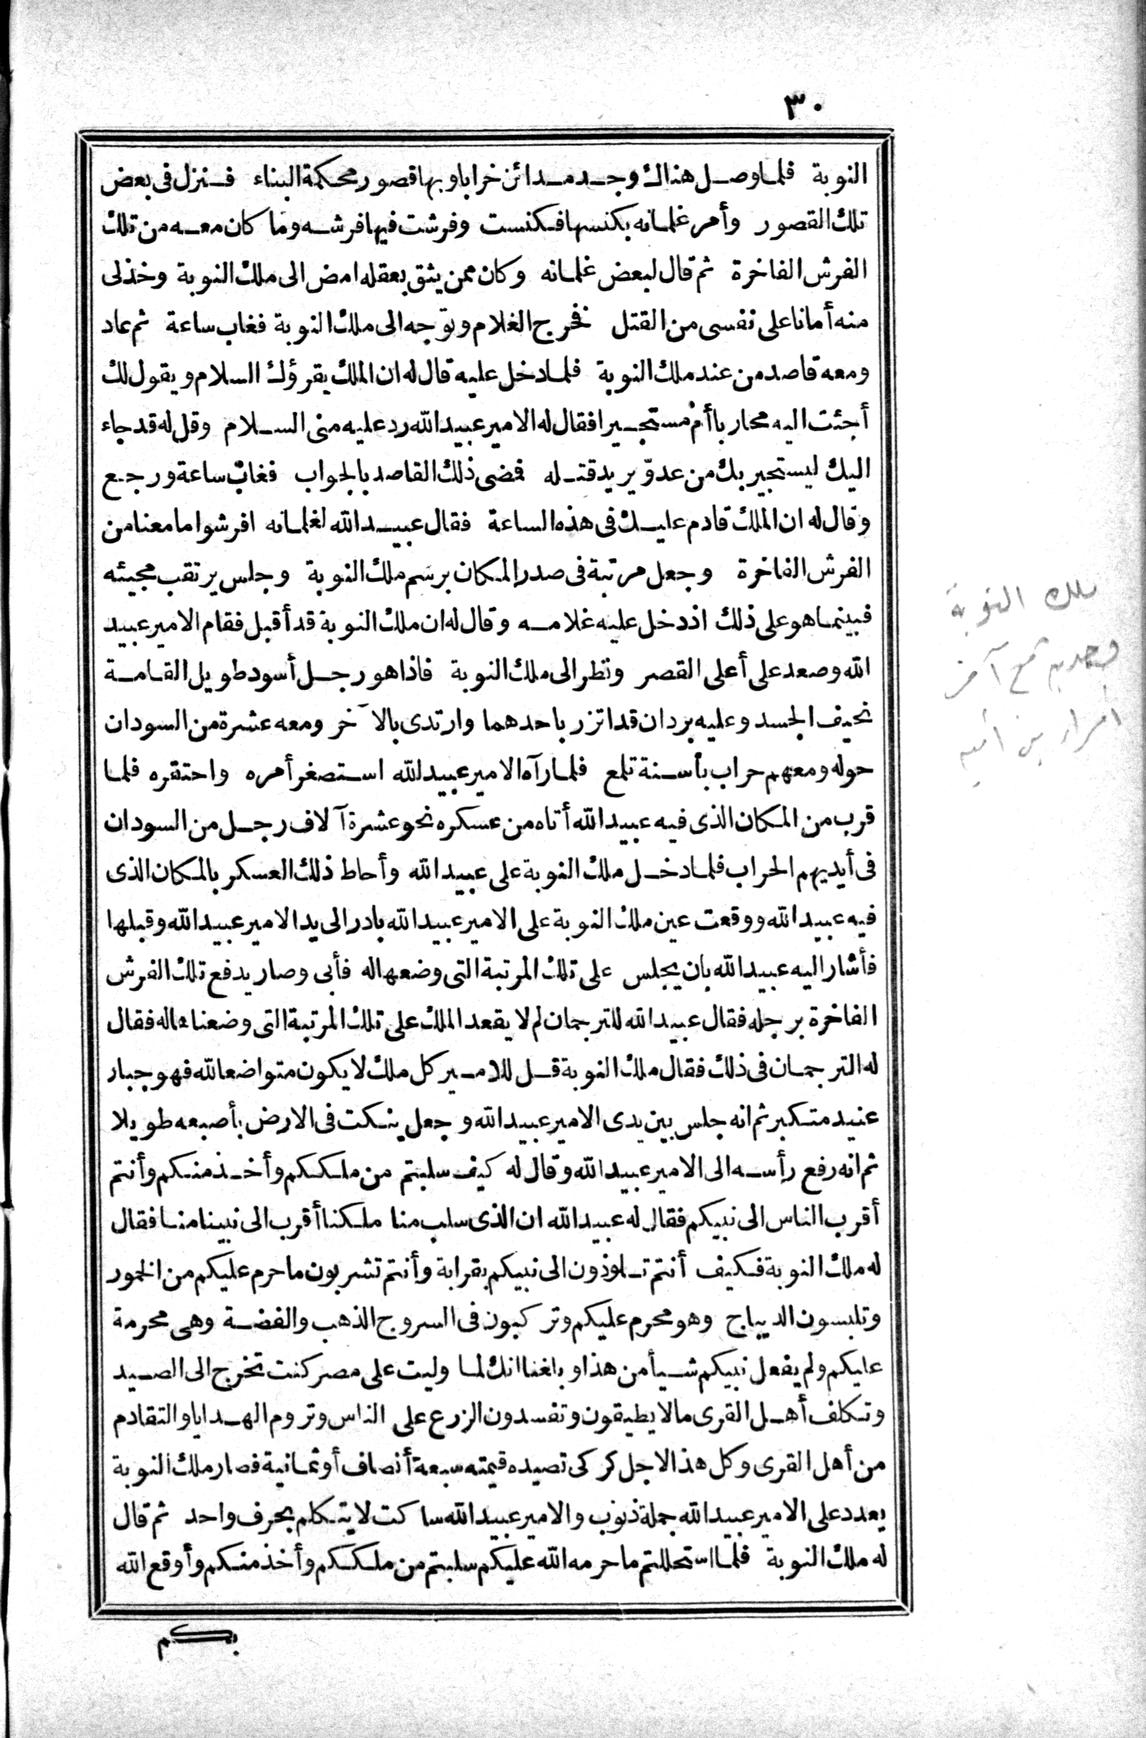 ٣٠
النوبة فلما وصل هناك وجد مدائن خرابا وبها قصور محكمة البناء فنزل فى بعض
تلك القصور وأمر غلمانه بكنسها فكنست وفرشت فيها فرشه وما كان معه من تلك
الفرش الفاخرة ثم قال لبعض غلمانه وكان ممن يثق بعقله امض الى ملك النوبة وخذلى
منه أمانا على نفسى من القتل فخرج الغلام وتوجه الى ملك النوبة فغاب ساعة ثم عاد
ومعه قاصد من عند ملك النوبة فلما دخل عليه قال له ان الملك يقرؤك السلام ويقول لك
أجئت اليه محاربا أم مستجيرا فقال له الامير عبيد الله رد عليه منى السلام وقل له قد جاء
اليك ليستجير بك من عدوّ يريد قتله فمضى ذلك القاصد بالجواب فغاب ساعة ورجع
وقال له ان الملك قادم عليك فى هذه الساعة فقال عبيد الله لغلمانه افرشوا ما معنا من
الفرش الفاخرة وجعل مرتبة فى صدر المكان برسم ملك النوبة وجلس يرتقب مجيئه
فبينما هو على ذلك اذ دخل عليه غلامه وقال له ان ملك النوبة قد أقبل فقام الامير عبيد
الله وصعد على أعلى القصر ونظر الى ملك النوبة فاذا هو رجل أسود طويل القامة
نحيف الجسد وعليه بردان قد اتزر باحدهما وارتدى بالآخر ومعه عشرة من السودان
حوله ومعهم حراب بأسنة تلمع فلما رآه الامير عبيد الله استصغر أمره واحتقره فلما
قرب من المكان الذى فيه عبيد الله أتاه من عسكره نحو عشرة آلاف رجل من السودان
فى أيديهم الحراب فلما دخل ملك النوبة على عبيد الله وأحاط ذلك العسكر بالمكان الذى
فيه عبيد الله ووقعت عين ملك النوبة على الامير عبيد الله بادر الى يد الامير عبيد الله وقبلها
فأشار اليه عبيد الله بان يجلس على تلك المرتبة التى وضعها له فأبى وصار يدفع تلك الفرش
الفاخرة برجله فقال عبيد الله للترجمان لم لا يقعد الملك على تلك المرتبة التى وضعناها له فقال
له الترجمان فى ذلك فقال ملك النوبة قل للامير كل ملك لا يكون متواضعا لله فهو جبار
عنيد متكبر ثم انه جلس بين يدى الامير عبيد الله وجعل ينكت فى الارض بأصبعه طويلا
ثم انه رفع رأسه الى الامير عبيد الله وقال له كيف سلبتم من ملككم وأخذ منكم وأنتم
أقرب الناس الى نبيكم فقال له عبيد الله ان الذى سلب منا ملكنا أقرب الى نبينا منا فقال
له ملك النوبة فكيف أنتم تلوذون الى نبيكم بقرابة وأنتم تشربون ما حرم عليكم من الخمور
وتلبسون الديباج وهو محرم عليكم وتركبون فى السروج الذهب والفضة وهى محرمة
عليكم ولم يفعل نبيكم شيأ من هذا وبلغنا انك لما وليت على مصر كنت تخرج الى الصيد
وتكلف أهل القرى ما لا يطيقون وتفسدون الزرع على الناس وتروم الهدايا والتقادم
من أهل القرى وكل هذا لاجل كركى تصيده قيمته سبعة أنصاف أو ثمانية فصار ملك النوبة
يعدد على الامير عبيد الله جملة ذنوب والامير عبيد الله ساكت لا يتكلم بحرف واحد ثم قال
له ملك النوبة فلما استحللتم ما حرمه الله عليكم سلبتم من ملككم وأخذ منكم وأوقع الله
بكم
ملك النوبة
مع آخر
أمراء بنى أمية